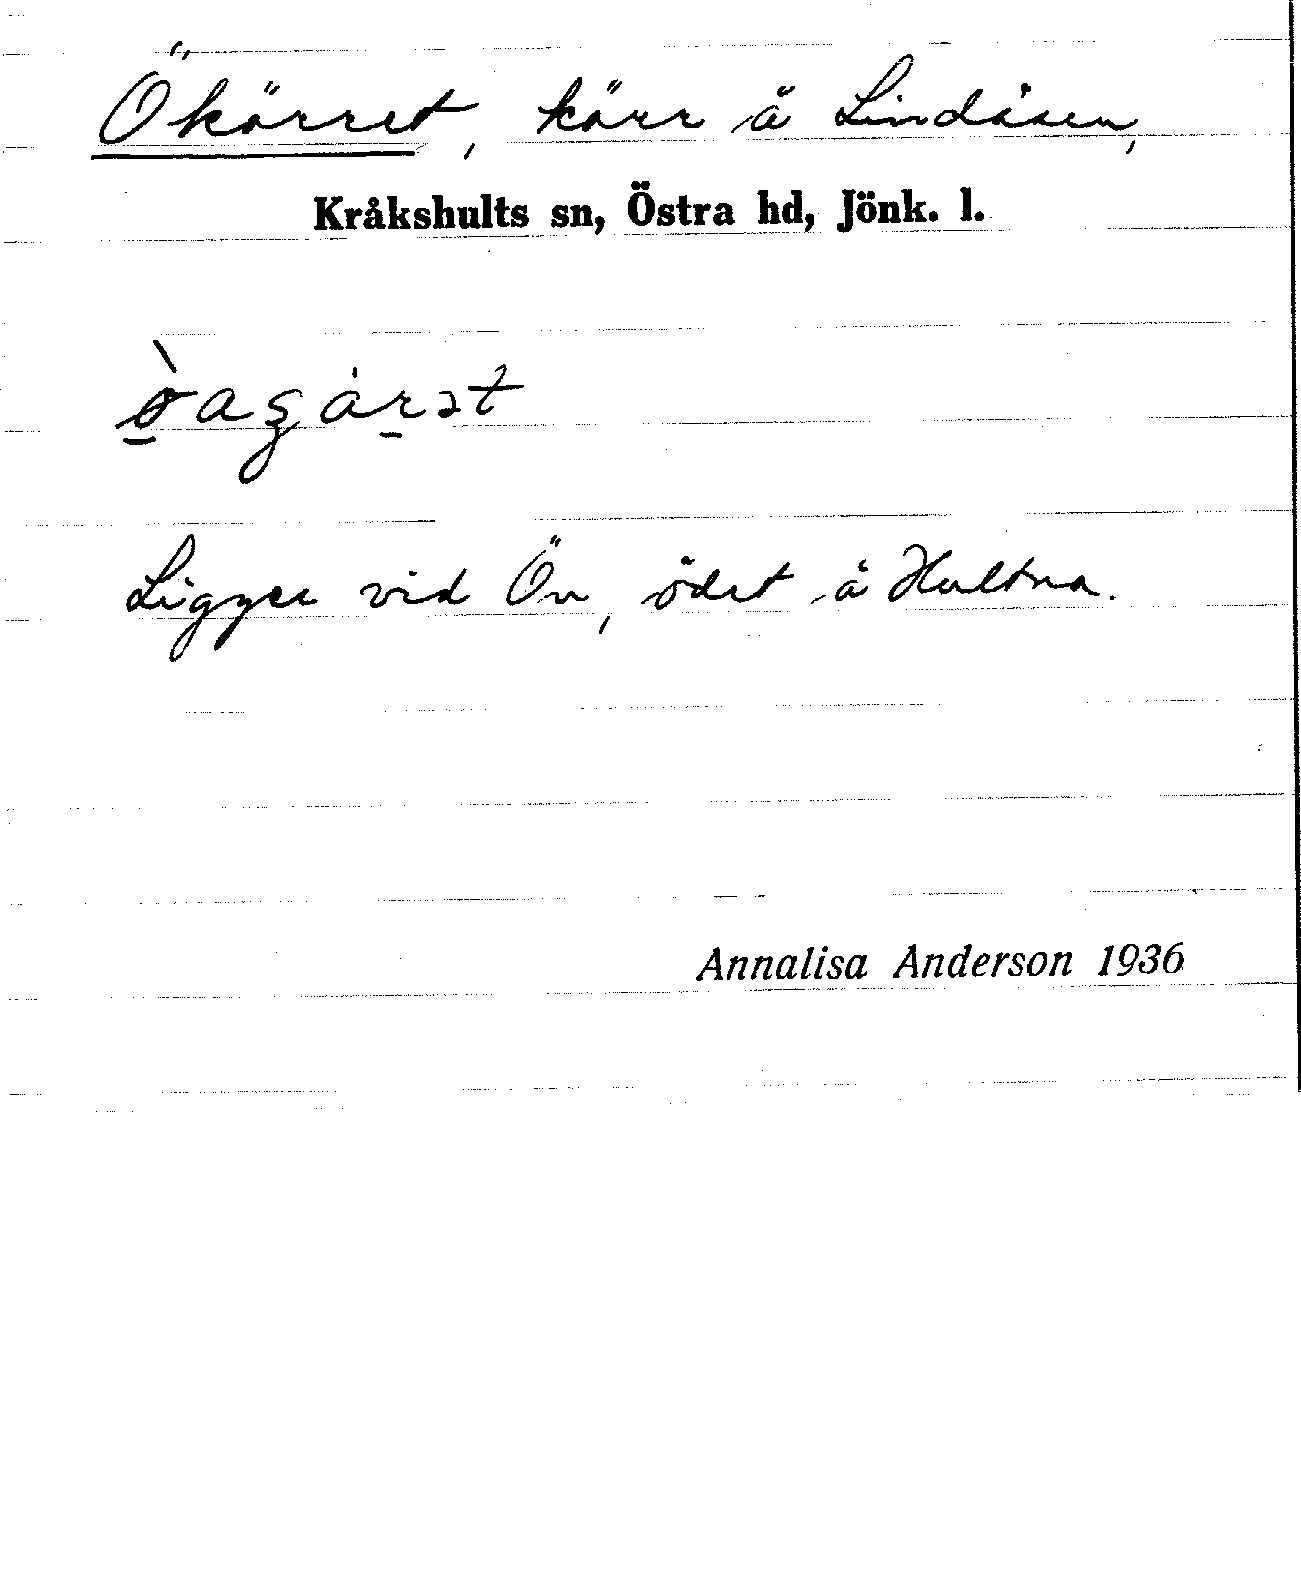 Ökärret, kärr å Lindåsen,
Kråkshults sn, Östra hd, Jönk. l.
Ligger vid Ön, ödet å Hultna.
Annalisa Anderson 1936